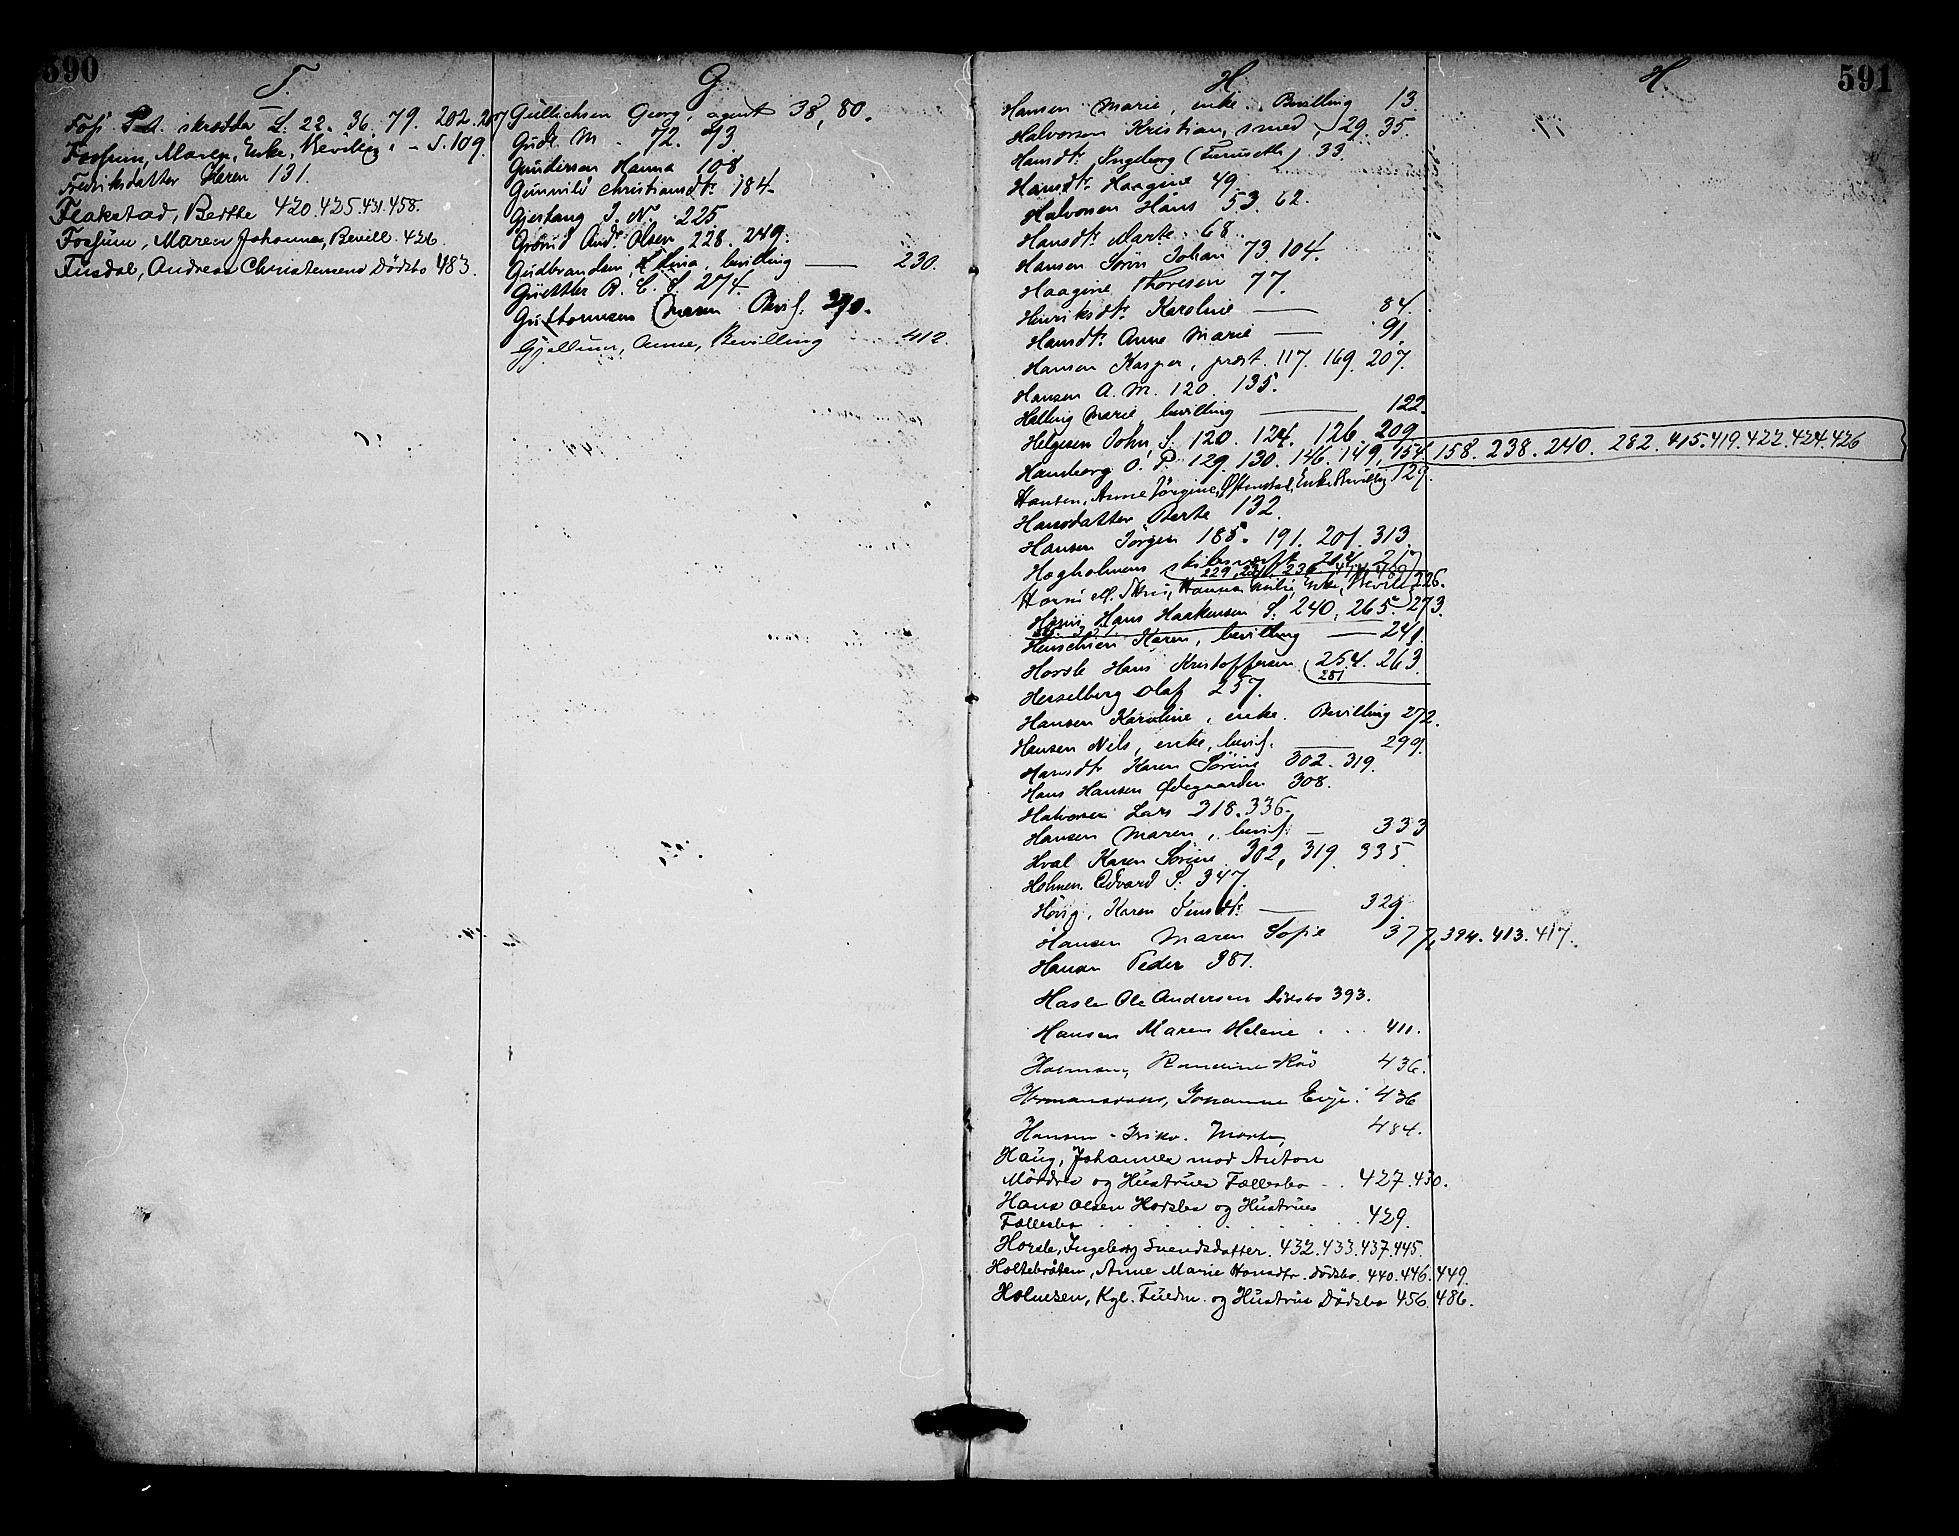 590
F.
Foss P. A. skrædder S. 22. 36. 79. 202. 207
Fossum, Maren, Enke, Bevilling. - S. 109.
Fredriksdatter Karen 131.
Flakstad, Berthe 420.425.431.458.
Fossum, Maren Johanne, Bevill. 426.
Fusdal, Andreas Christensens Dödsbo 483.
G
Gullichsen Georg, agent 38, 80.
Gude M. 72. 73.
Gundersen Hanna 108
Gunnild Christiansdtr 184.
Gjertang J. N. 225
Grönud Andr. Olsen 228. 249.
Gudbrandsen, bevilling 230.
Guettler B. C. S. 274.
Guttormsen Maren Bevil. 290.
Gjellum, Anne, Bevilling 412.
H
Hansen Marie, enke. Bevilling 13
Halvorsen Kristian, smed, 29. 35.
Hansdtr Ingeborg (Furuseth) 33.
Hansdtr Haagine 49
Halvorsen Hans 53. 62.
Hansdtr Marte 68.
Hansen Sörin Johan 73. 104.
Haagine Thoresen 77.
Henriksdtr Karoline 84.
Hansdtr Anne Marie 91
Hansen Kasper, prest. 117. 169. 207.
Hansen A. M. 120. 135.
Helling Marie bevilling 122
Helgesen John S. 120. 124. 126. 209
Hamborg O. P. 129. 130. 146. 149. 154. 158. 238. 240. 282. 415. 419. 422. 424. 426
Hansen, Anne Jörgine, Enke, Bevillig 129.
Hansdatter Berte 132.
Hansen Jörgen 185. 191. 201. 313.
Høgholmens skibsværft
229, 236
Enke, Bevill. 226.
Hans Haakensen S. 240. 265. 273.
Henschien Karen, bevilling 241.
Horsle Hans Kristoffersen 254. 263.
281
Hesselberg Olaf 257.
Hansen Karoline, enke. Bevilling 272.
Hansen Nils, enke, bevil. 299.
Hansdtr Karen Sörine 302. 319.
Hans Hansen Ødegaarden 308.
Halvorsen Lars 318. 336.
Hansen Maren, bevil. 333
Hval Karen Sörine. 302, 319. 335.
Holmen Edvard S. 347.
Hövig, Karen Jensdtr 329
Hansen Maren Sofie 377, 394. 413. 417.
Hansen Peder 381.
Hasle Ole Andersen dödsbo 393.
Hansen Maren Helene . . . 411.
436.
Johanne Evje. 436
Hansen 484.
Haug, Johannes mod Anton
Mördre og Hustrues Fællesbo . . 427.430.
Hans Olsen Horsles og Hustrues
Fællesbo . . . . . . 429.
Horsle, Ingeborg Svendsdatter. 432.433.437.445.
Holtebråten, Anne Marie Hansdtr. dödsbo. 440.446.449.
Holmsen, Kgl. Fuldm. og Hustrus Dödsbo 456.486.
H.
591